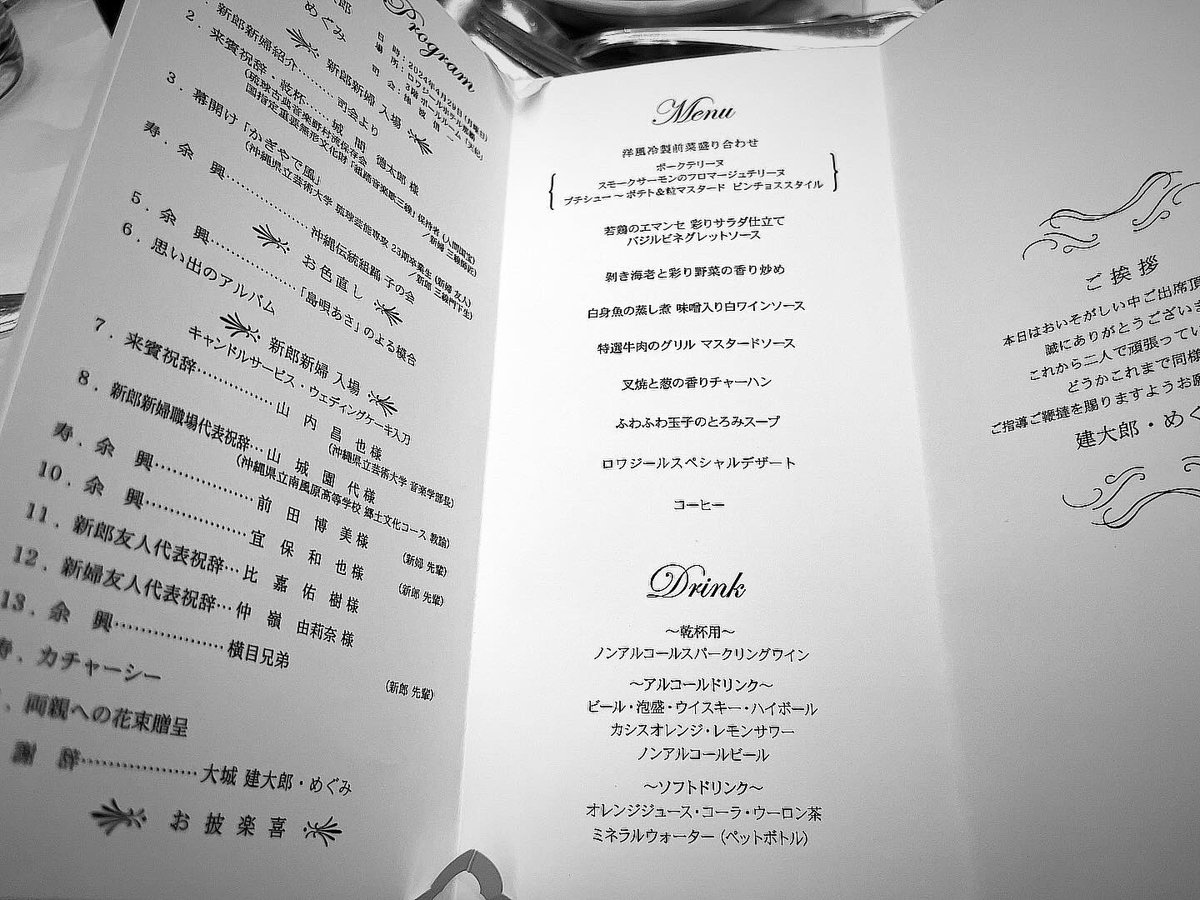 Program
めぐみ
日時：2024年4月29日(月曜日)
場所：ロワジールホテル那覇
3階 ボールルーム「天妃」
新郎新婦 入場
新郎新婦紹介………司会より
2．来賓祝辞・乾杯……城間 徳太郎 様
(琉球古典音楽野村流保存会
国指定重要無形文化財「組踊音楽歌三線」保持者(人間国宝)
／新婦 三線師匠)
3．幕開け「かぎやで風」
(沖縄県立芸術大学 琉球芸能専攻 23期卒業生(新婦 友人)
／新郎 三線門下生)
寿．余興…………沖縄伝統組踊 子の会
5．余興…………「島唄あさ」のよる模合
お色直し
6．思い出のアルバム
新郎新婦 入場
キャンドルサービス・ウェディングケーキ入刀
7．来賓祝辞…………山内 昌也様
(沖縄県立芸術大学 音楽学部長)
8．新郎新婦職場代表祝辞…山城 園代様
(沖縄県立南風原高等学校 郷土文化コース 教諭)
寿．余興…………前田 博美様
(新婦 先輩)
10．余興…………宜保 和也様
(新郎 先輩)
11．新郎友人代表祝辞…比嘉 佑樹様
12．新婦友人代表祝辞…仲嶺 由莉奈様
13．余興…………横目兄弟
(新郎 先輩)
寿．カチャーシー
両親への花束贈呈
謝辞…………大城 建大郎・めぐみ
お披楽喜
Menu
洋風冷製前菜盛り合わせ
ポークテリーヌ
スモークサーモンのフロマージュテリーヌ
プチシュー～ポテト＆粒マスタード ピンチョススタイル
若鶏のエマンセ 彩りサラダ仕立て
バジルビネグレットソース
剝き海老と彩り野菜の香り炒め
白身魚の蒸し煮 味噌入り白ワインソース
特選牛肉のグリル マスタードソース
叉焼と葱の香りチャーハン
ふわふわ玉子のとろみスープ
ロワジールスペシャルデザート
コーヒー
Drink
～乾杯用～
ノンアルコールスパークリングワイン
～アルコールドリンク～
ビール・泡盛・ウイスキー・ハイボール
カシスオレンジ・レモンサワー
ノンアルコールビール
～ソフトドリンク～
オレンジジュース・コーラ・ウーロン茶
ミネラルウォーター（ペットボトル）
ご挨拶
本日はおいそがしい中ご出席頂
誠にありがとうござい
これから二人で頑張ってい
どうかこれまで同様
ご指導ご鞭撻を賜りますようお願
建大郎・めぐ